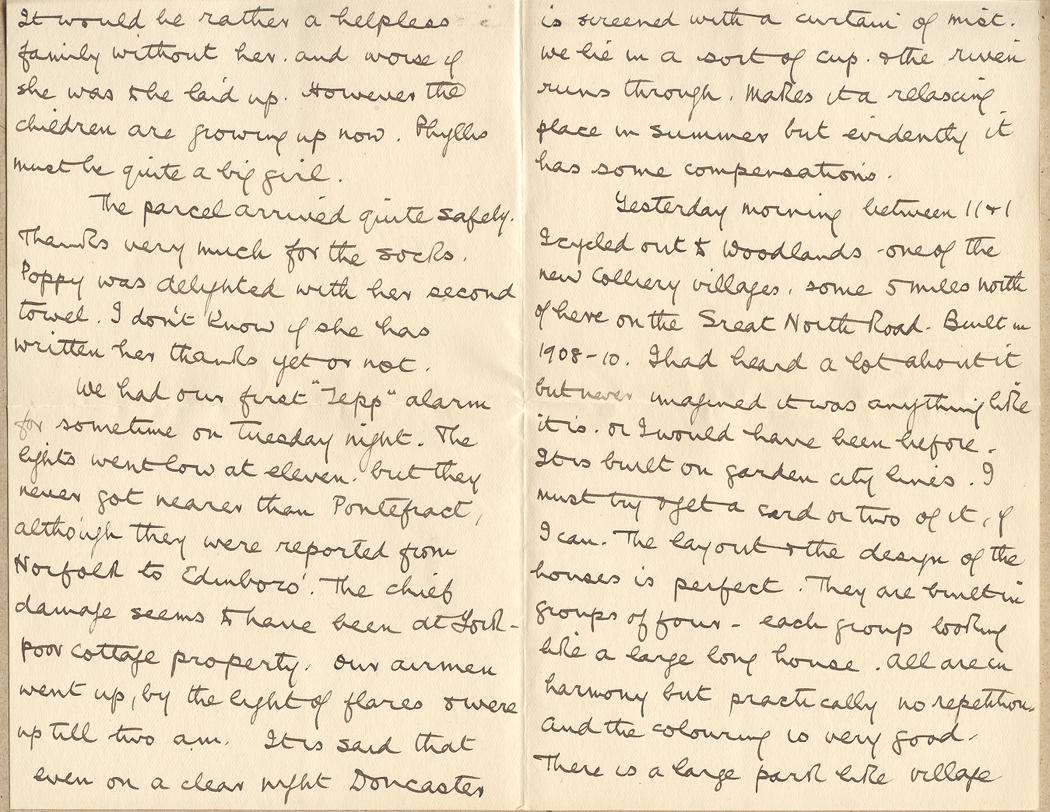 It would be rather a helpless
family without her. and worse if
she was to be laid up. However the
children are growing up now. Phyllis
must be quite a big girl.
The parcel arrived quite safely.
Thanks very much for the socks.
Poppy was delighted with her second
towel. I don't know if she has
written her thanks yet or not.
We had our first "Zepp" alarm
for sometime on Tuesday night. The
lights went low at eleven. but they
never got nearer than Pontefract,
although they were reported from
Norfolk to Edinboro'. The chief
damage seems to have been at York-
poor cottage property. Our airmen
went up, by the light of flares & were
up till two a.m. It is said that
even on a clear night Doncaster
is screened with a curtain of mist.
We lie in a sort of cup. & the river
runs through. Makes it a relaxing
place in summer but evidently it
has some compensations.
Yesterday morning between 11 & 1
I cycled out to Woodlands - one of the
new Colliery villages, some 5 miles north
of here on the Great North Road. Built in
1908-10. I had heard a lot about it
but never imagined it was anything like
it is. or I would have been before.
It is built on garden city lines. I
must try & get a card or two of it, if
I can. The layout & the design of the
houses is perfect. They are built in
groups of four - each group looking
like a large long house. All are in
harmony but practically no repetition.
And the colouring is very good.
There is a large park like village